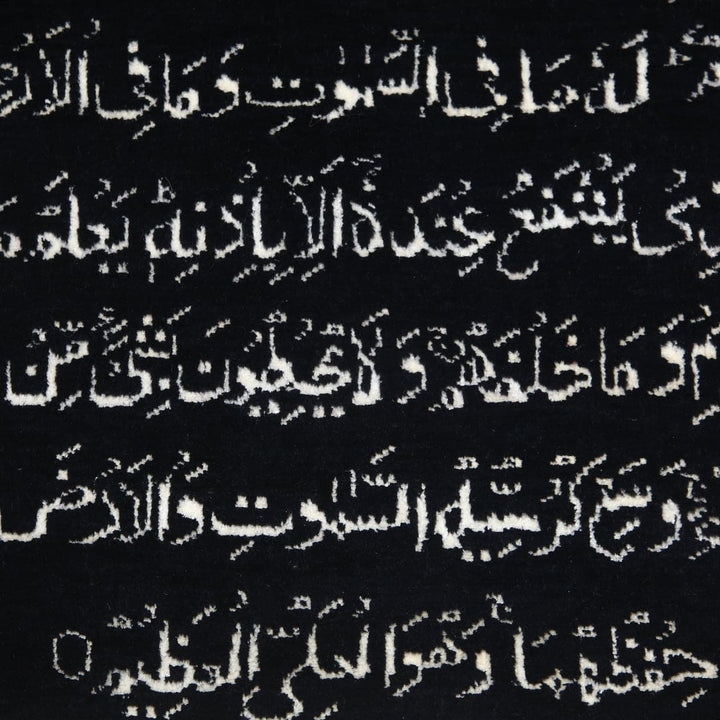 لَهُ مَا فِى السَّمٰوٰتِ وَمَا فِى الْاَرْ
ى يَشْفَعُ عِنْدَهُ اِلَّا بِاِذْنِهٖ يَعْلَمُ
وَمَا خَلْفَهُمْ وَلَا يُحِيْطُوْنَ بِشَىْءٍ مِّنْ
وَسِعَ كُرْسِيُّهُ السَّمٰوٰتِ وَالْاَرْضَ
حِفْظُهُمَا وَهُوَ الْعَلِىُّ الْعَظِيْمُ